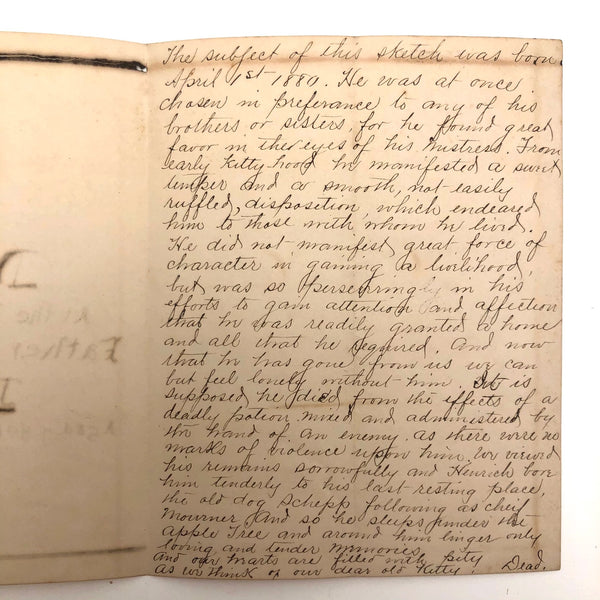 The subject of this sketch was born
April 1st 1880. He was at once
chosen in preferance to any of his
brothers or sisters, for he found great
favor in the eyes of his Mistress. From
early Kittyhood he manifested a sweet
temper and a smooth, not easily
ruffled, disposition, which endeared
him to those with whom he lived.
He did not manifest great force of
character in gaining a livlihood,
but was so perseveringly in his
efforts to gain attention and affection
that he was readily granted a home
and all that he required. And now
that he has gone from us we can
but feel lonely without him. It is
supposed he died from the effects of a
deadly potion mixed and administered by
the hand of an enemy. as there were no
marks of violence upon him. We viewed
his remains sorrowfully and Henrich bore
him tenderly to his last resting place,
the old dog Schepp following as chief
Mourner. And so he sleeps under the
apple Tree and around him linger only
loving and tender Memories.
and our hearts are filled with pity
as we think of our dear old Kitty, Dead.
At the
Father
Aged